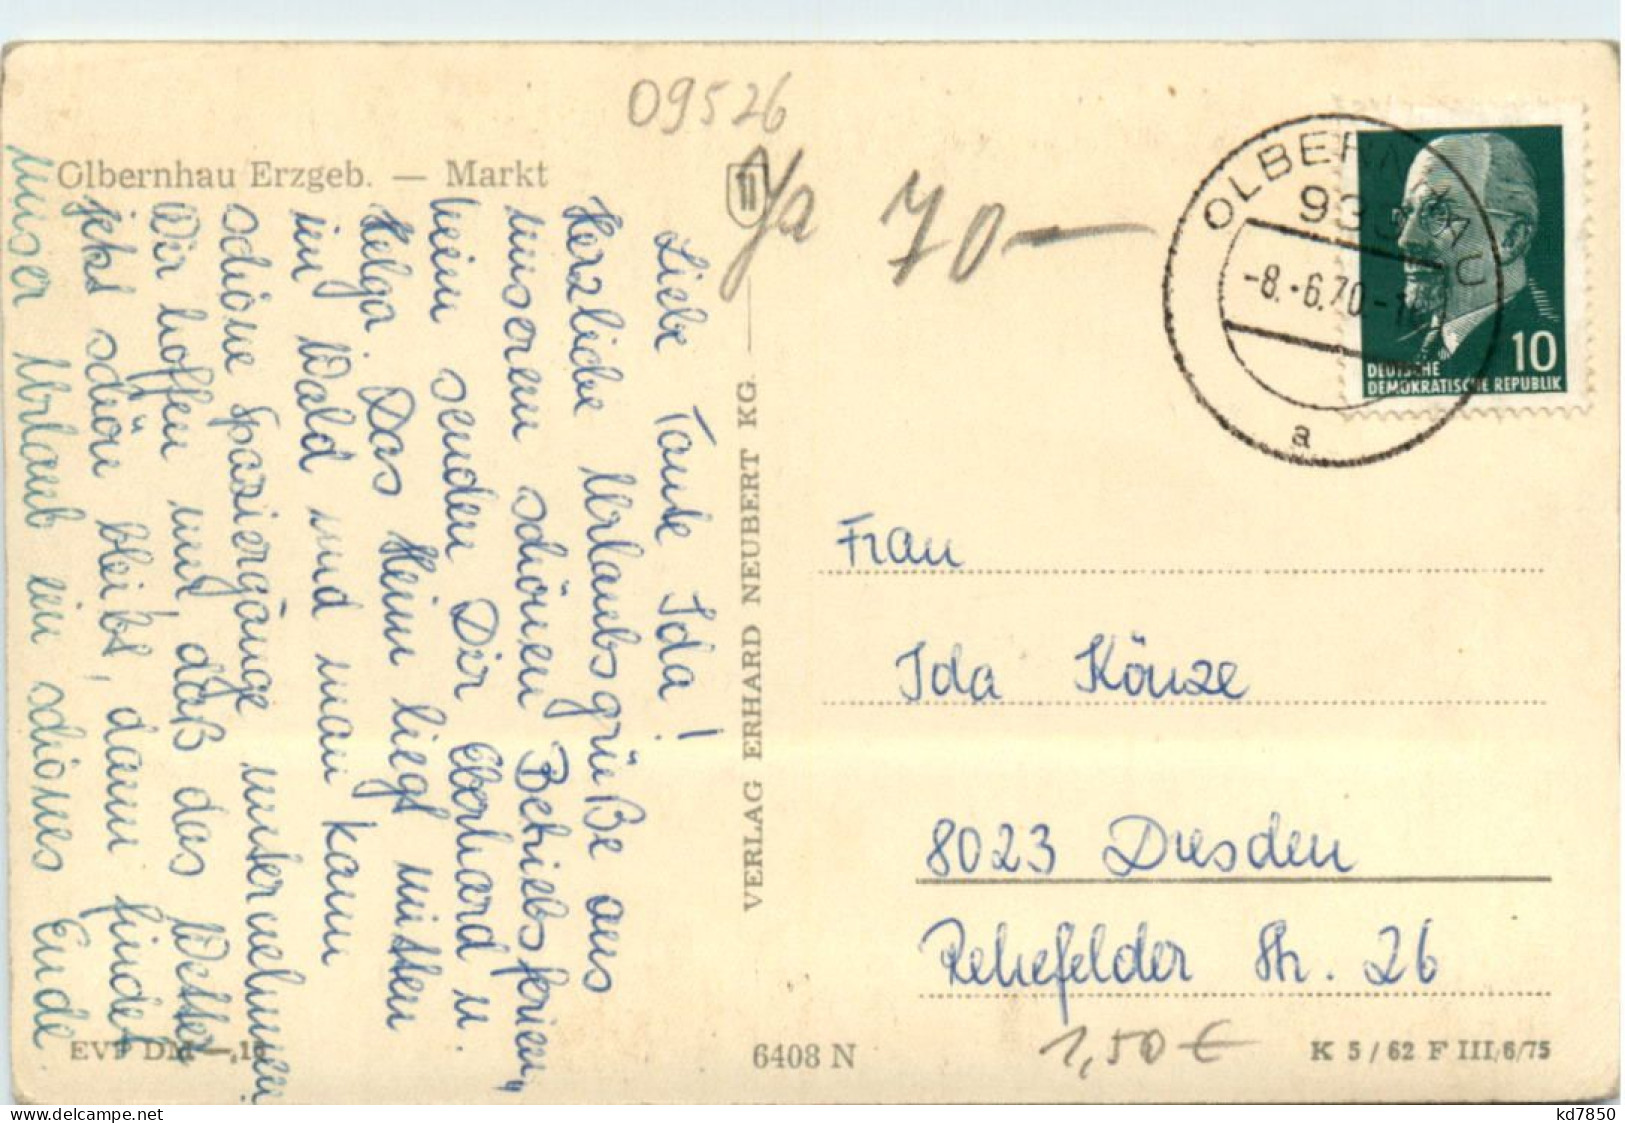 09526
Ja 70 —
Olbernhau Erzgeb. — Markt
Liebe Tante Ida!
Herzliche Urlaubsgrüße aus
unserem schönen Betriebsferien„
heim senden Dir Eberhard u.
Helga. Das Heim liegt mitten
im Wald und man kann
schöne Spaziergänge unternehmen
Wir hoffen nur, daß das Wetter
jetzt schön bleibt, dann findet
unser Urlaub ein schönes Ende
EVP DM —,10
VERLAG ERHARD NEUBERT KG.
6408 N
OLBERNHAU
933
-8.-6.70-
a
10
DEUTSCHE
DEMOKRATISCHE REPUBLIK
Frau
Ida Könze
8023 Dresden
Rehefelder Str. 26
1,50 €
K 5/62 F III/6/75
Delcampe.net
kd7850